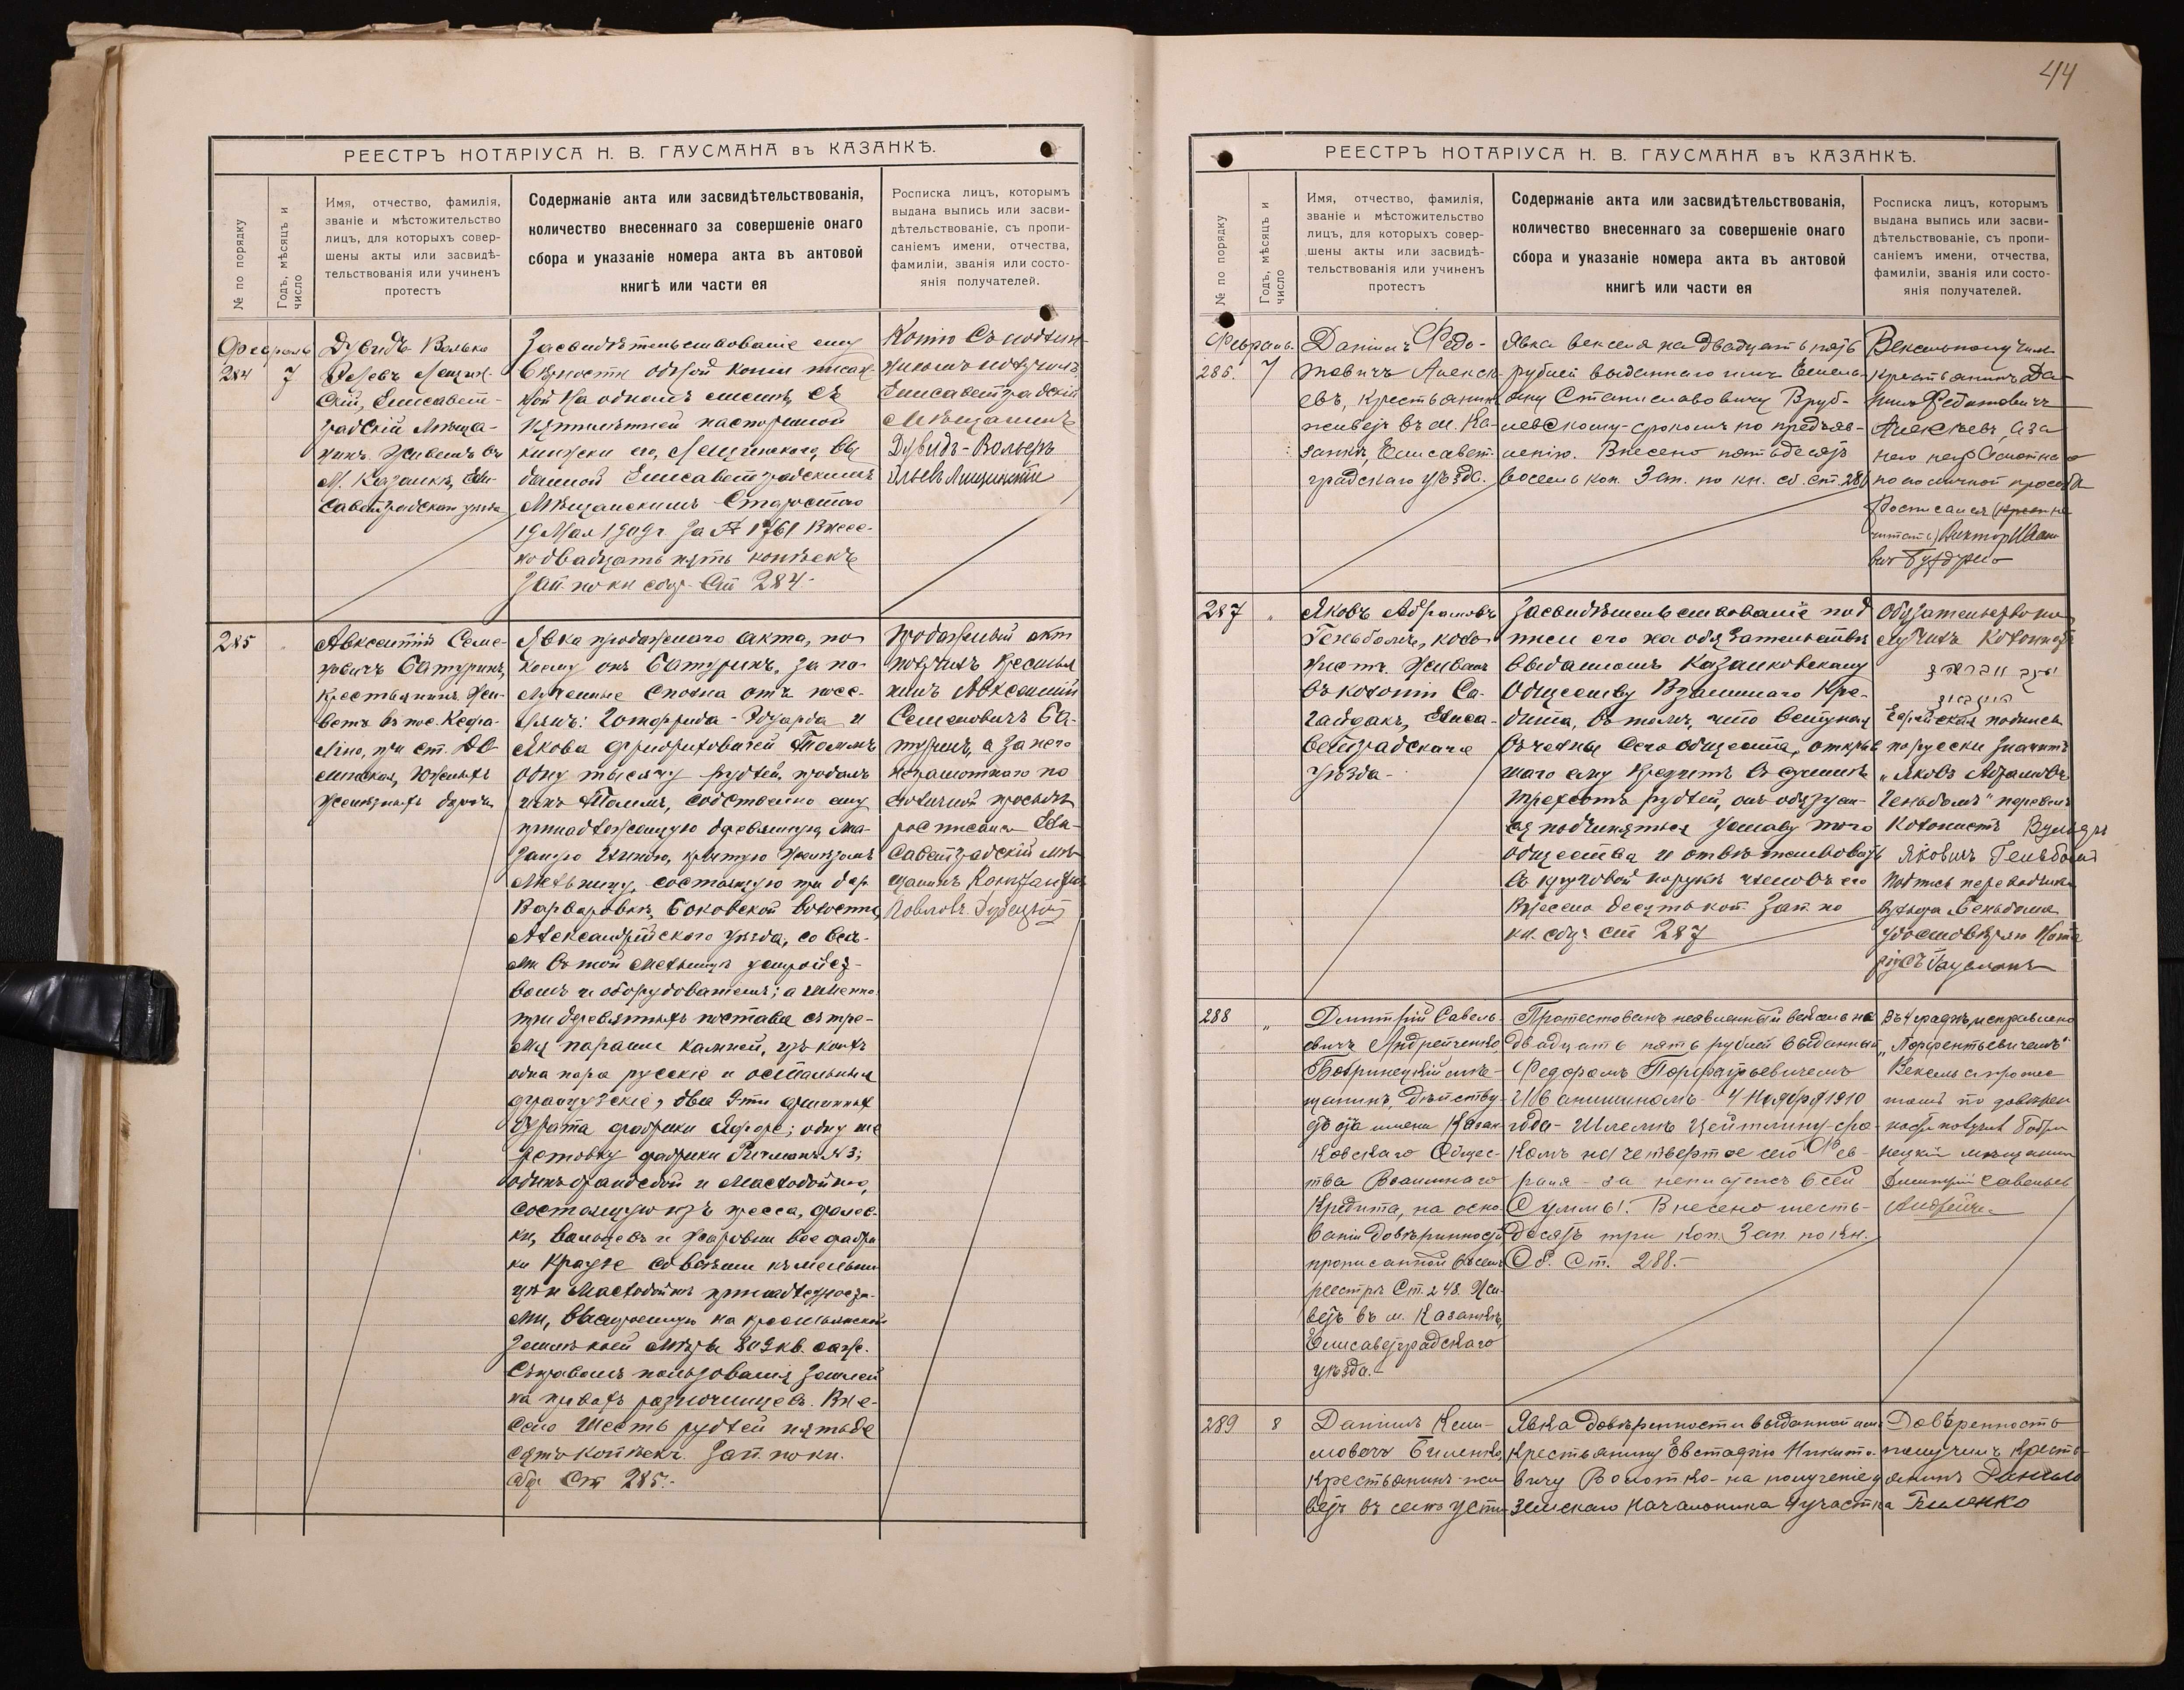 44
РЕЕСТРЪ НОТАРІУСА Н. В. ГАУСМАНА въ КАЗАНКѢ.
№ по порядку
Годъ, мѣсяцъ и
число
Имя, отчество, фамилія,
званіе и мѣстожительство
лицъ, для которыхъ совер-
шены акты или засвидѣ-
тельствованія или учиненъ
протестъ
Содержаніе акта или засвидѣтельствованія,
количество внесеннаго за совершеніе онаго
сбора и указаніе номера акта въ актовой
книгѣ или части ея
Росписка лицъ, которымъ
выдана выпись или засви-
дѣтельствованіе, съ пропи-
саніемъ имени, отчества,
фамиліи, званія или состо-
янія получателей.
Февраль
284 7
Дувидъ Волько
скій, Елисавет-
градскій мѣща-
нинъ. Живетъ въ
м. Казанкѣ, Ели-
саветградскаго уѣзда
Засвидѣтельствованіе ему
вѣрности одной копіи писан-
ной на одномъ листѣ, съ
пятилѣтней паспортной
книжки его, вы
данной Елисаветградскимъ
Мѣщанскимъ Старостою
19 Мая 1909 г. за № 1761 Внесе-
но двадцать пять копѣекъ
Зап. по кн. сбор. Ст 284.
Копію съ подлин-
Елисаветградскій
мѣщанинъ
Дувидъ-Вольфъ
285
Авксентій Семе-
новичъ Батуринъ,
крестьянинъ. Жи-
ветъ въ пос.
при ст. До
линская, Южныхъ
желѣзныхъ дорогъ
Явка продажнаго акта, по
коему онъ Батуринъ, за по-
лученные сполна отъ посе-
лянъ: Готфрида-Эдуарда и
Якова Фридриховичей Толмъ
одну тысячу рублей, продалъ
имъ Толмъ, собственно ему
принадлежащую деревянную, ма-
заную глиною, крытую желѣзомъ
мельницу, состоящую при дер.
Варваровкѣ, Боковской волости,
Александрійскаго уѣзда, со всѣ-
ми въ той мельницѣ устройст-
вомъ и оборудованіемъ; а именно:
три деревянныхъ постава съ тре-
мя парами камней, изъ коихъ
одна пара русскіе и остальныя
французскіе, два
фабрики
фабрики № 3;
и маслобойню,
состоящую изъ пресса,
ки, вальцевъ и жаровни все фабри
ки Краузе со всѣми къ мельни
цѣ и маслобойнѣ принадлежностя-
ми, выстроенную на крестьянской
землѣ коей мѣры 809 кв. саж.
съ правомъ пользованія землей
на правахъ разночинцевъ. Вне-
сено шесть рублей пятьде
сятъ копѣекъ. Зап. по кн.
сбор. Ст 285.-
Продажный актъ
получилъ крестья
нинъ Авксентій
Семеновичъ Ба-
туринъ, а за него
неграмотнаго по
его личной просьбѣ
росписался Ели-
саветградскій мѣ-
щанинъ Константинъ
РЕЕСТРЪ НОТАРІУСА Н. В. ГАУСМАНА въ КАЗАНКѢ.
№ по порядку
Годъ, мѣсяцъ и
число
Имя, отчество, фамилія,
званіе и мѣстожительство
лицъ, для которыхъ совер-
шены акты или засвидѣ-
тельствованія или учиненъ
протестъ
Содержаніе акта или засвидѣтельствованія,
количество внесеннаго за совершеніе онаго
сбора и указаніе номера акта въ актовой
книгѣ или части ея
Росписка лицъ, которымъ
выдана выпись или засви-
дѣтельствованіе, съ пропи-
саніемъ имени, отчества,
фамиліи, званія или состо-
янія получателей.
Февраль.
286. 7
Даніилъ Федо-
товичъ Алексѣ-
евъ, крестьянинъ
живетъ въ м. Ка-
занкѣ, Елисавет-
градскаго уѣзда.
Явка векселя на двадцать пять
рублей выданнаго имъ Емель-
яну Станиславовичу Вруб-
левскому - срокомъ по предъяв-
ленію. Внесено пятьдесятъ
восемь коп. Зап. по кн. сб. ст. 286
Вексель получилъ
крестьянинъ Да-
ніилъ Федотовичъ
Алексѣевъ, а за
него неграмотнаго
по его личной просьбѣ
Росписался
Викторъ Ивано
вичъ
287 "
Яковъ Абрамовъ
Гельбомъ, коло-
нистъ. Живетъ
въ колоніи Са-
гайдакъ, Елиса-
ветградскаго
уѣзда.-
Засвидѣтельствованіе под
писи его на обязательствѣ
выданномъ Казанковскому
Обществу Взаимнаго Кре-
дита, въ томъ, что вступая
въ члены сего общества, открыв
шаго ему кредитъ въ суммѣ
трехсотъ рублей, онъ обязует-
ся подчиняться уставу того
общества и отвѣтствовать
въ круговой порукѣ членовъ его
Внесено десять коп. Зап. по
кн. сбор. ст 287
Обязательство по
лучилъ колонистъ
Еврейская подпись
по русски значитъ
"Яковъ Абрамовъ
Гельбомъ" перевелъ
колонистъ
Яковичъ Гельбомъ
Подпись переводчика
Гельбома
удостовѣряю Нота
ріусъ Гаусманъ
288 "
Дмитрій Савель-
евичъ Андрейченко,
Бобринецкій мѣ-
щанинъ, дѣйству-
ющій отъ имени Казан-
ковскаго Общес-
тва Взаимнаго
Кредита, на осно-
ваніи довѣренности
прописанной въ семъ
реестрѣ Ст. 248. Жи-
ветъ въ м. Казанкѣ,
Елисаветградскаго
уѣзда.-
Протестованъ неявленный вексель на
двадцать пять рублей выданный
Федоромъ Порфирьевичемъ
4 Ноября 1910
года - Шлемѣ Цейтлину - сро-
комъ на четвертое сего Фев-
раля - за неплатежъ всей
Суммы. Внесено шесть-
десятъ три коп. Зап. по кн.
Сб. Ст. 288.-
Въ 4 графѣ исправлено
Вексель съ протес
томъ по довѣрен
ности получилъ Бобри
нецкій мѣщанинъ
Дмитрій Савельев
Андрейчен
289 8
Даніилъ Кли-
мовичъ Биленко,
крестьянинъ - жи
ветъ въ селѣ Усти-
Явка довѣренности выданной имъ
крестьянину Евстафію Никито-
вичу Волотко - на полученіе у
Земскаго Начальника 4 участка
Довѣренность
получилъ кресть-
янинъ Данило
Биленко